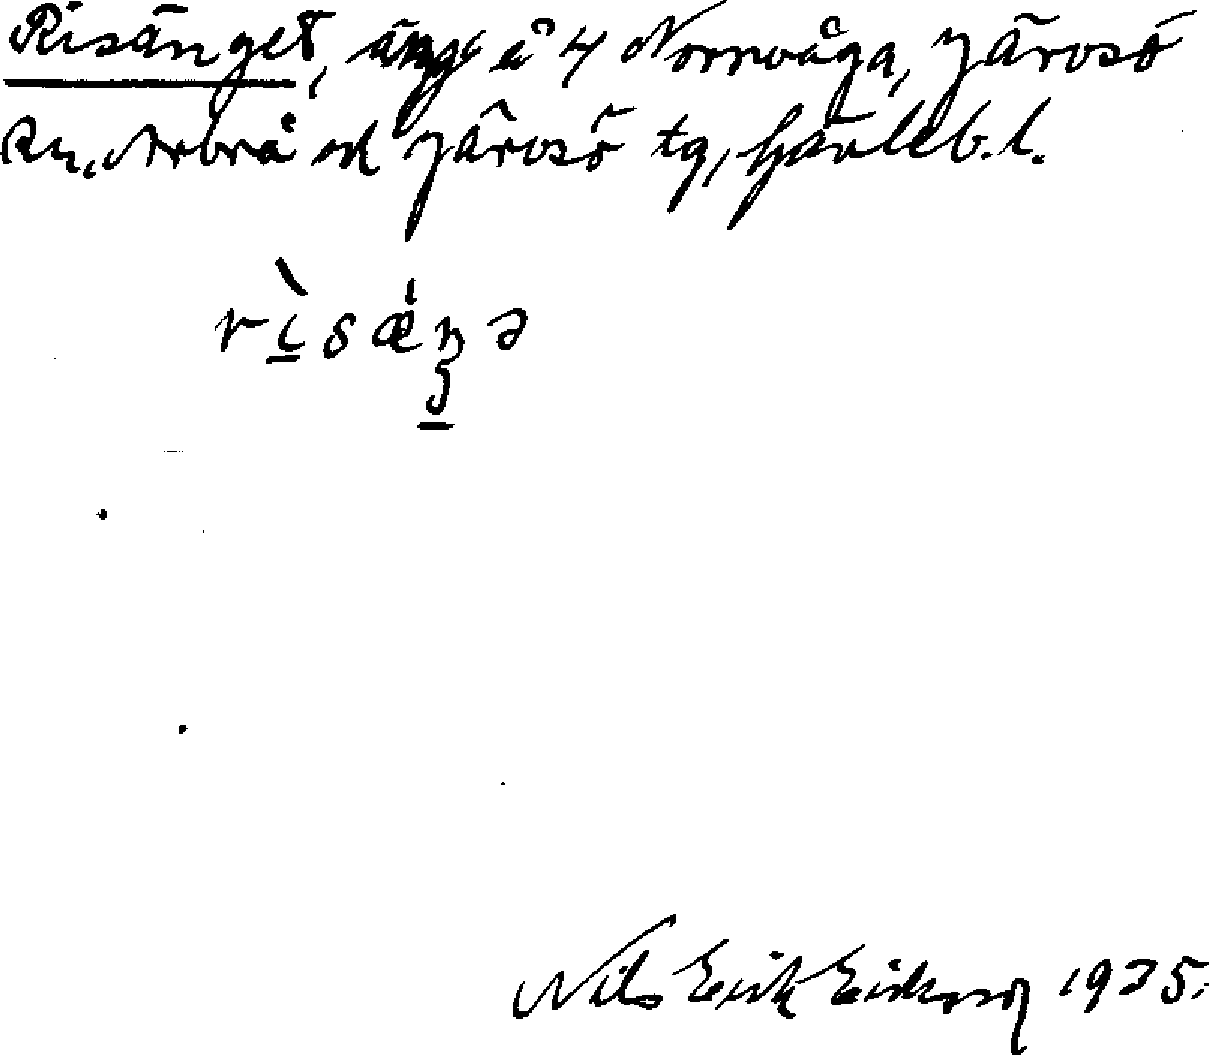 Risänget, äng å 4 Norrvåga, Järvsö
sn, Arbrå och Järvsö tg, Gävleb. l.
rìsæŋə
Nils Erik Eriksson 1935.